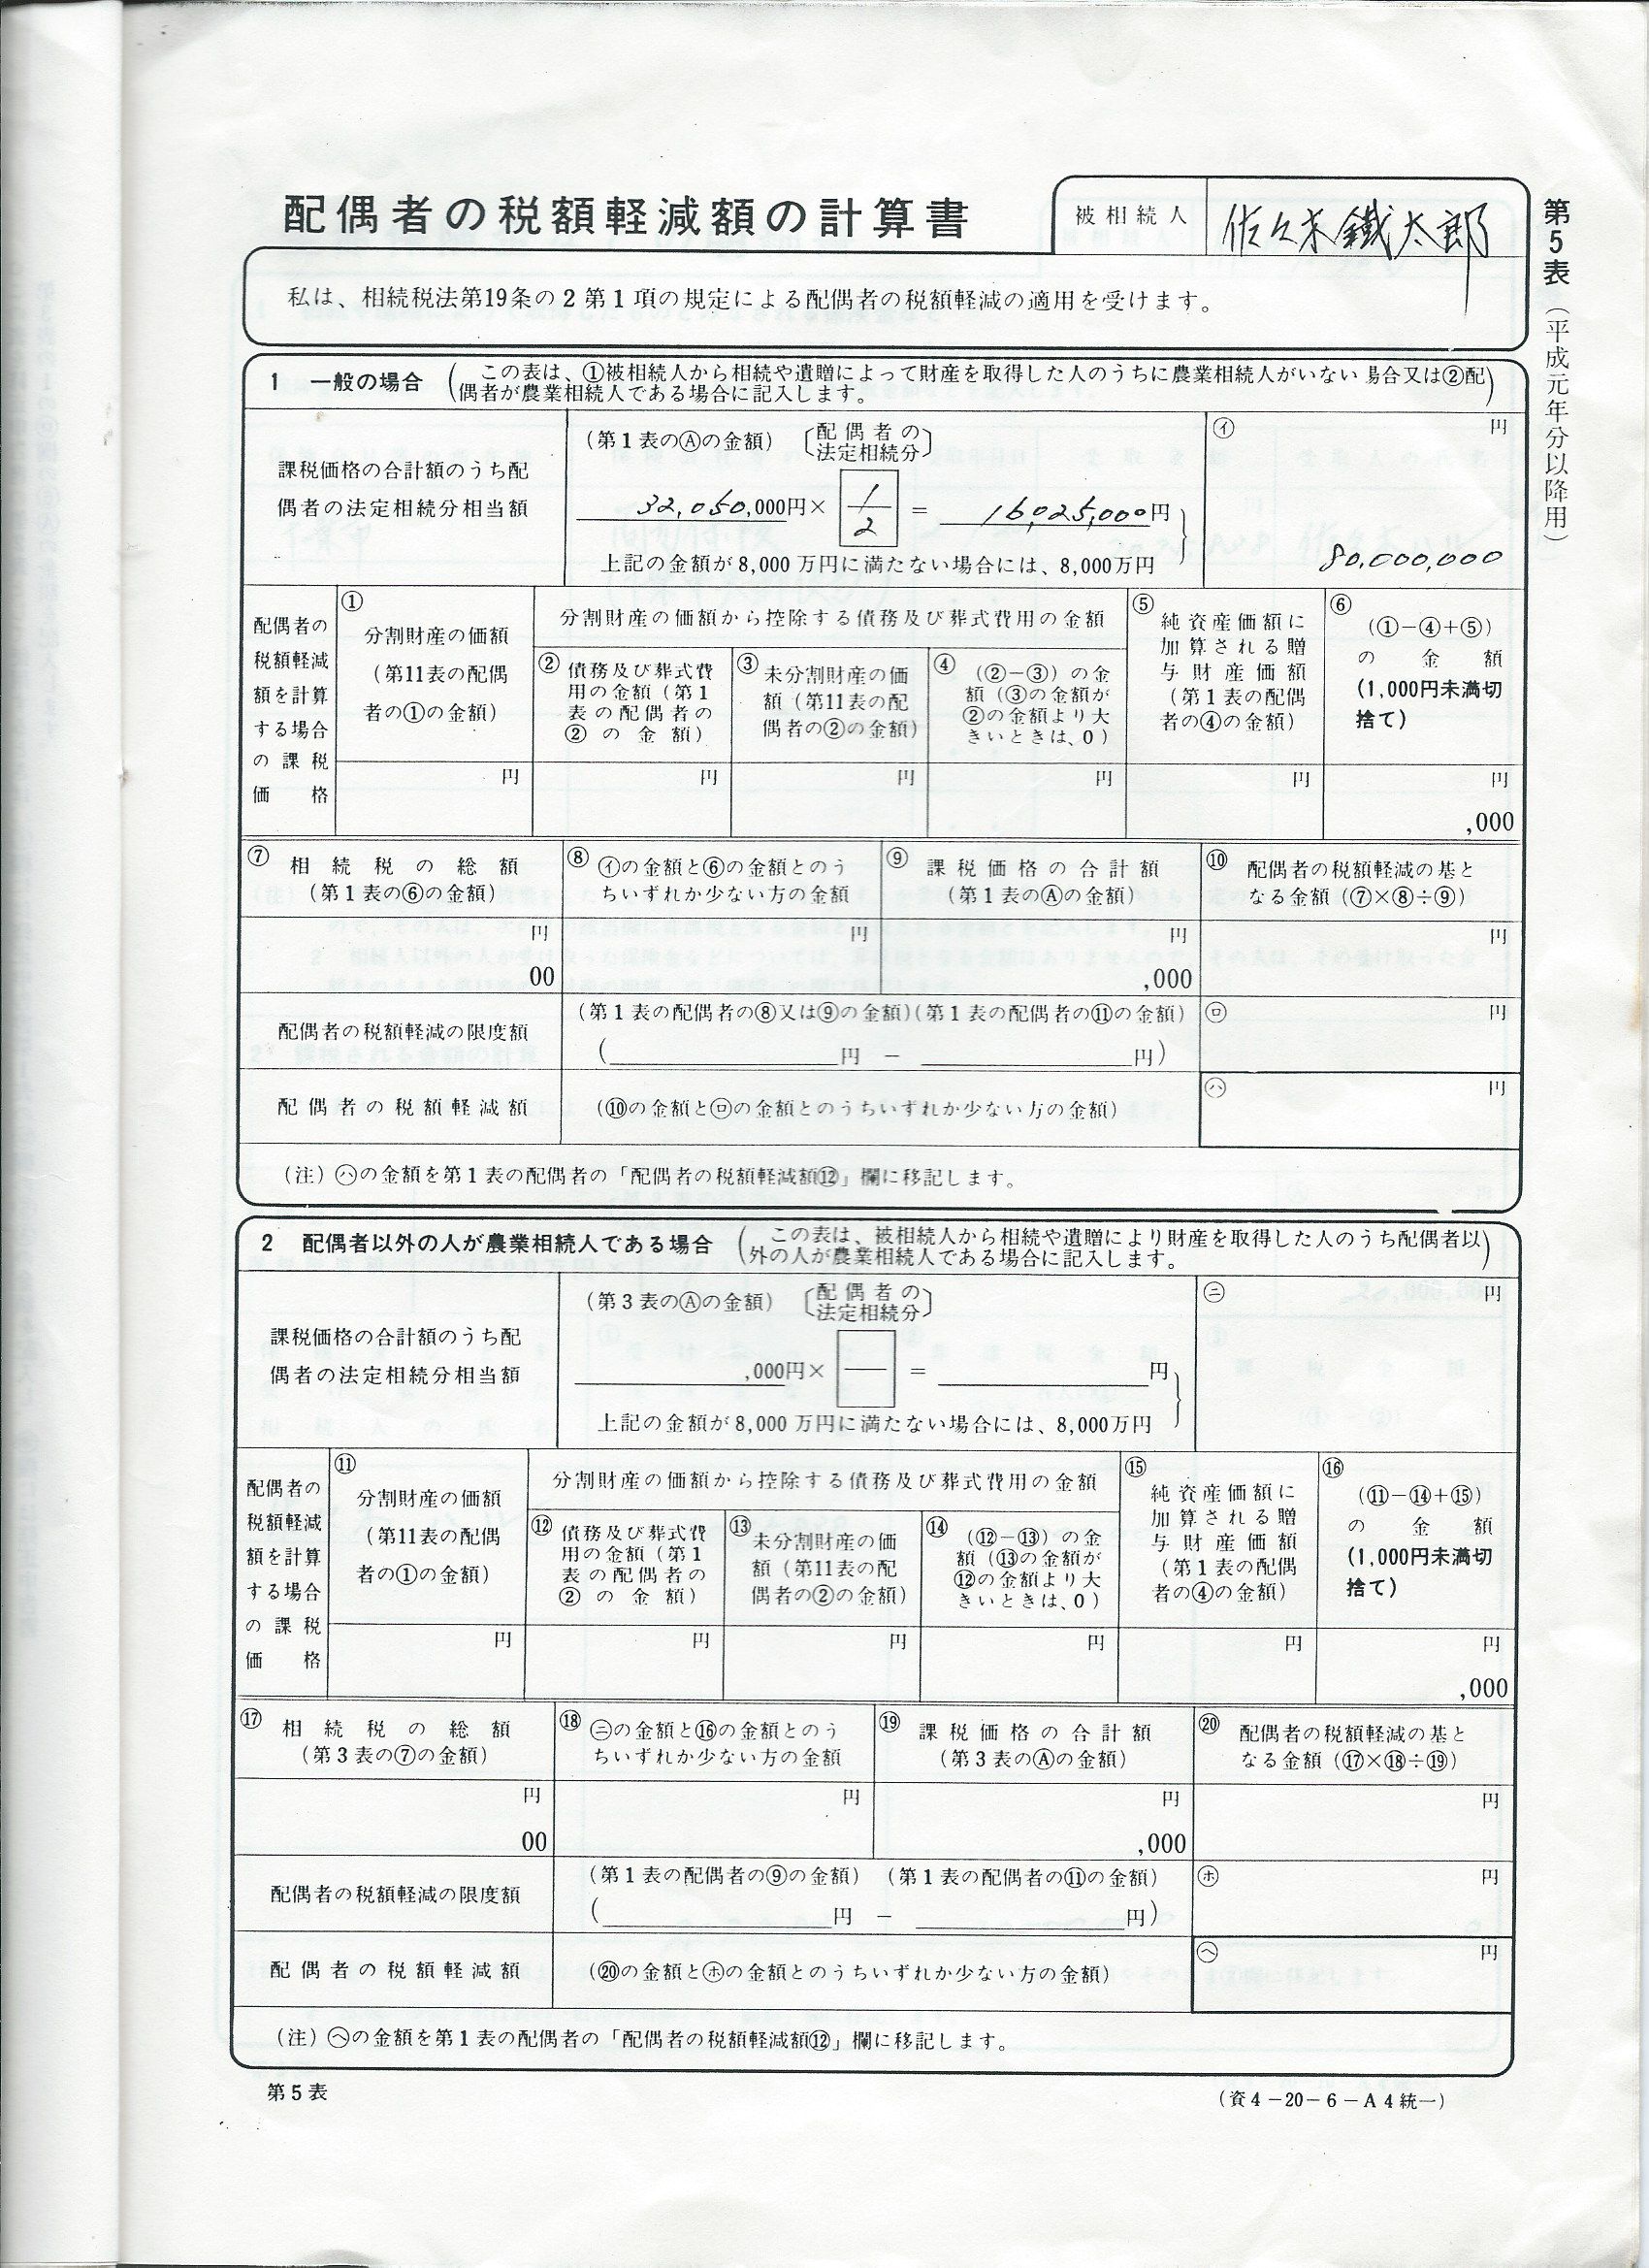 配偶者の税額軽減額の計算書
被相続人
佐々木鐵太郎
第5表(平成元年分以降用)
私は、相続税法第19条の2第1項の規定による配偶者の税額軽減の適用を受けます。
1 一般の場合
(この表は、①被相続人から相続や遺贈によって財産を取得した人のうちに農業相続人がいない場合又は②配
偶者が農業相続人である場合に記入します。)
課税価格の合計額のうち配
偶者の法定相続分相当額
(第1表のⒶの金額)
〔配偶者の
法定相続分〕
32,050,000円× 1/2 = 16,025,000円
上記の金額が8,000万円に満たない場合には、8,000万円
㋑ 円
80,000,000
配偶者の
税額軽減
額を計算
する場合
の課税
価格
①
分割財産の価額
(第11表の配偶
者の①の金額)
円
分割財産の価額から控除する債務及び葬式費用の金額
② 債務及び葬式費
用の金額(第1
表の配偶者の
②の金額)
円
③ 未分割財産の価
額(第11表の配
偶者の②の金額)
円
④ (②-③)の金
額(③の金額が
②の金額より大
きいときは、0)
円
⑤ 純資産価額に
加算される贈
与財産価額
(第1表の配偶
者の④の金額)
円
⑥
(①-④+⑤)
の金額
(1,000円未満切
捨て)
円
,000
⑦ 相続税の総額
(第1表の⑥の金額)
円
00
⑧ ㋑の金額と⑥の金額とのう
ちいずれか少ない方の金額
円
⑨ 課税価格の合計額
(第1表のⒶの金額)
円
,000
⑩ 配偶者の税額軽減の基と
なる金額(⑦×⑧÷⑨)
円
配偶者の税額軽減の限度額
(第1表の配偶者の⑧又は⑨の金額)(第1表の配偶者の⑪の金額)
( 円 - 円)
㋺ 円
配偶者の税額軽減額
(⑩の金額と㋺の金額とのうちいずれか少ない方の金額)
㋩ 円
(注) ㋩の金額を第1表の配偶者の「配偶者の税額軽減額⑫」欄に移記します。
2 配偶者以外の人が農業相続人である場合
(この表は、被相続人から相続や遺贈により財産を取得した人のうち配偶者以
外の人が農業相続人である場合に記入します。)
課税価格の合計額のうち配
偶者の法定相続分相当額
(第3表のⒶの金額)
〔配偶者の
法定相続分〕
,000円× = 円
上記の金額が8,000万円に満たない場合には、8,000万円
㋥ 円
配偶者の
税額軽減
額を計算
する場合
の課税
価格
⑪
分割財産の価額
(第11表の配偶
者の①の金額)
円
分割財産の価額から控除する債務及び葬式費用の金額
⑫ 債務及び葬式費
用の金額(第1
表の配偶者の
②の金額)
円
⑬ 未分割財産の価
額(第11表の配
偶者の②の金額)
円
⑭ (⑫-⑬)の金
額(⑬の金額が
⑫の金額より大
きいときは、0)
円
⑮ 純資産価額に
加算される贈
与財産価額
(第1表の配偶
者の④の金額)
円
⑯
(⑪-⑭+⑮)
の金額
(1,000円未満切
捨て)
円
,000
⑰ 相続税の総額
(第3表の⑦の金額)
円
00
⑱ ㋥の金額と⑯の金額とのう
ちいずれか少ない方の金額
円
⑲ 課税価格の合計額
(第3表のⒶの金額)
円
,000
⑳ 配偶者の税額軽減の基と
なる金額(⑰×⑱÷⑲)
円
配偶者の税額軽減の限度額
(第1表の配偶者の⑨の金額) (第1表の配偶者の⑪の金額)
( 円 - 円)
㋭ 円
配偶者の税額軽減額
(⑳の金額と㋭の金額とのうちいずれか少ない方の金額)
㋬ 円
(注) ㋬の金額を第1表の配偶者の「配偶者の税額軽減額⑫」欄に移記します。
第5表
(資4-20-6-A4統一)